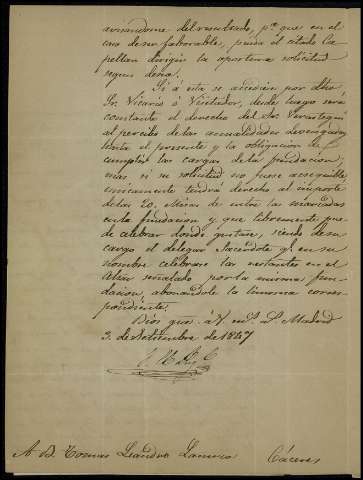 avisandome del resultado, pª que en el
caso de ser faborable, pueda el citado Ca
pellan dirigir la oportuna solicitud
segun desea.
Si á esta se accediese por dho
Sr. Vicario ó Visitador, desde luego será
constante el derecho del Sr. Verastegui
al percibo de las anualidades devengadas
hasta el presente y la obligacion de
cumplir las cargas de la fundacion;
mas, si su solicitud no fuese asequible,
unicamente tendrá derecho al importe
de las 20. Misas de entre las marcadas
en la fundacion y que libremente pue
de celebrar donde gustare, siendo de su
cargo el delegar Sacerdote qe en su
nombre celebrare las restantes en el
Altar señalado por la misma fun
dacion, abonandole la limosna corres
pondiente.
Dios gue. á V. ms. as. Madrid
3. de Setiembre de 1847
A D. Tomas Leandro Caceres